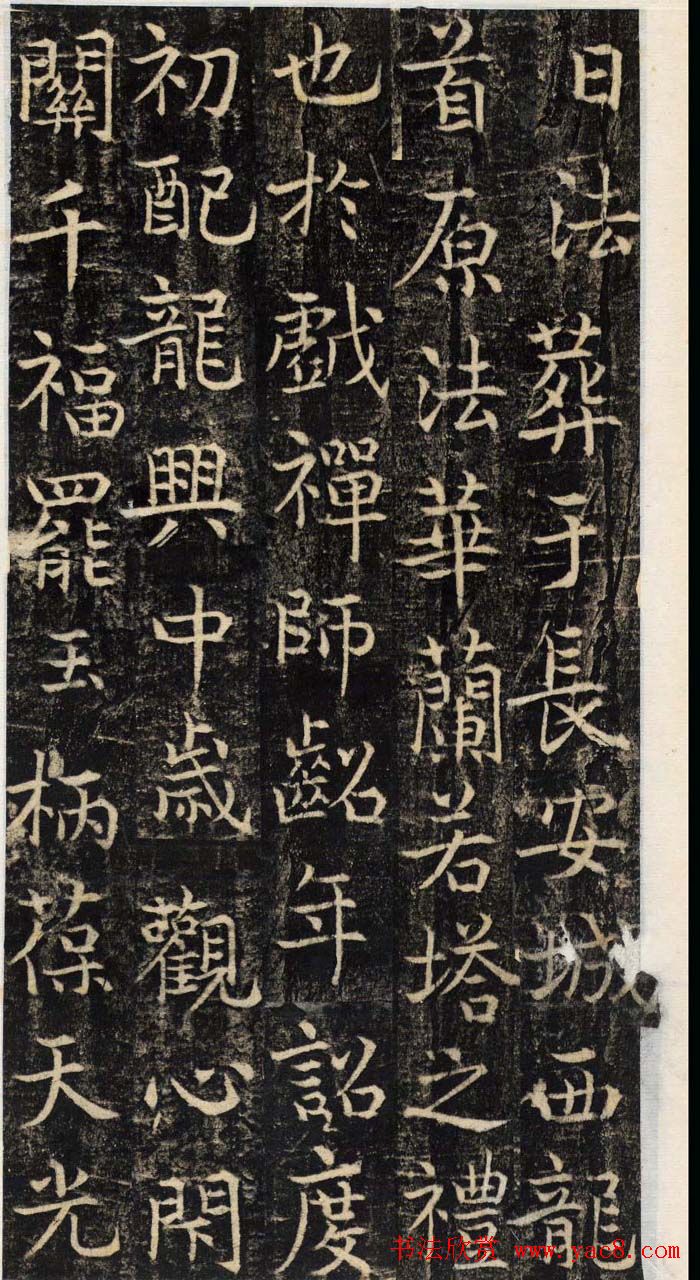 日法葬于長安城西龍
首原法華蘭若塔之禮
也於戯禪師齠年詔度
初配龍興中歲觀心閑
關千福罷玉柄葆天光
书法欣赏 www.yac8.com